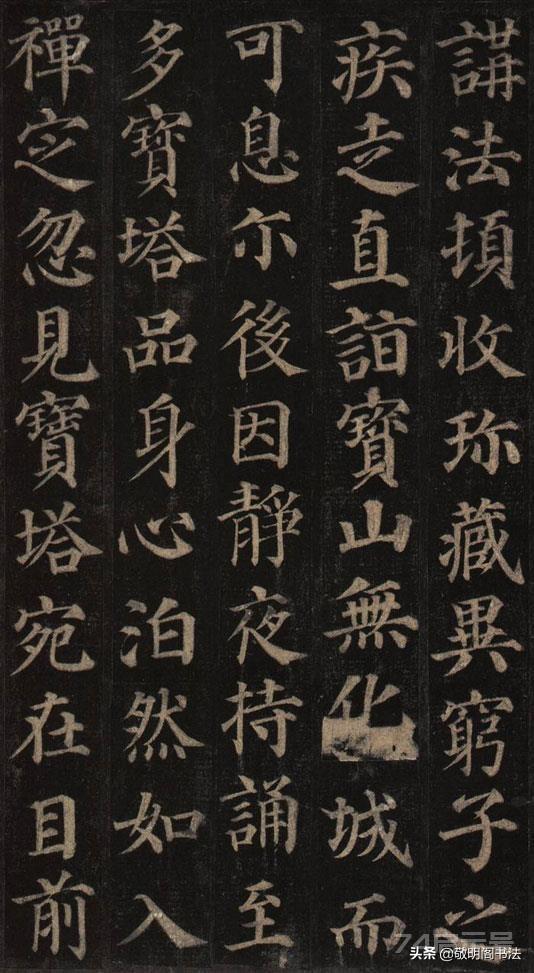 講法頓收珎藏異窮子之
疾走直詣寳山無化城而
可息尒後因靜夜持誦至
多寳塔品身心泊然如入
禪定忽見寳塔宛在目前
头条 @敬明阁书法